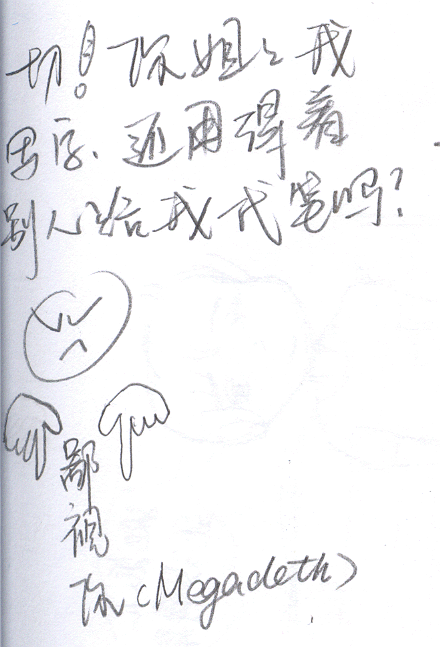 切！你姐姐我
写字、还用得着
别人给我代笔吗？
鄙
视
你（Megadeth）